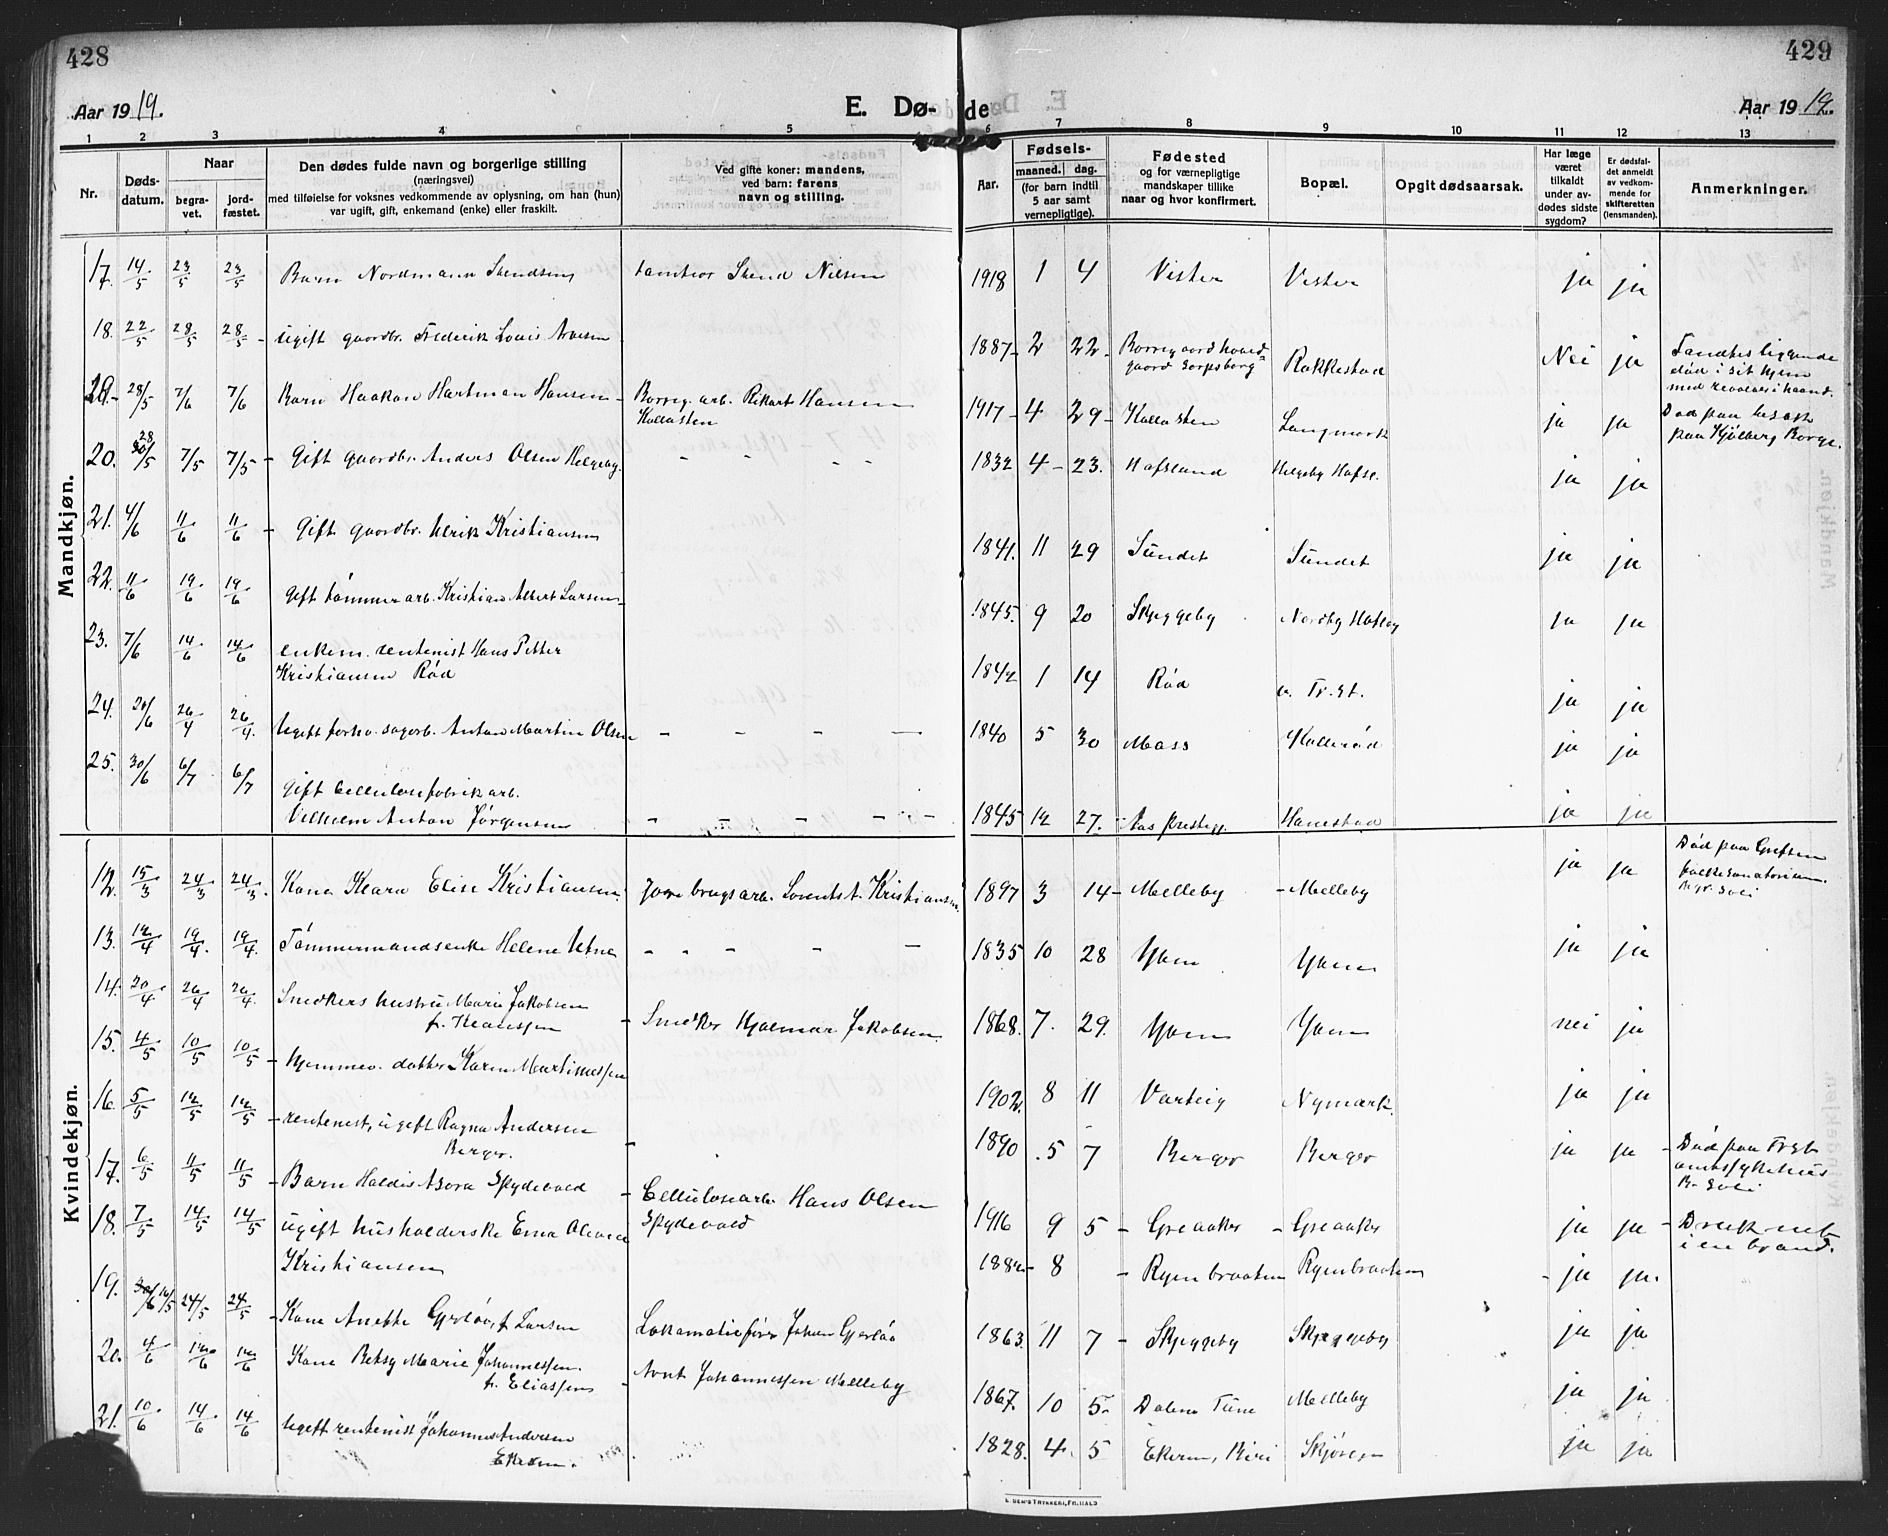 428
429
Aar 1919.
E. Dø- de
Aar 1919.
1 2 3 4 5 6 7 8 9 10 11 12 13
Nr.
Døds-
datum.
Naar
begra-
vet.
jord-
fæstet.
Den dødes fulde navn og borgerlige stilling
(næringsvei)
med tilføielse for voksnes vedkommende av oplysning, om han (hun)
var ugift, gift, enkemand (enke) eller fraskilt.
Ved gifte koner: mandens,
ved barn: farens
navn og stilling.
Aar.
Fødsels-
maaned. dag.
(for barn indtil
5 aar samt
vernepligtige).
Fødested
og for værnepligtige
mandskaper tillike
naar og hvor konfirmert.
Bopæl.
Opgit dødsaarsak.
Har læge
været
tilkaldt
under av-
dødes sidste
sygdom?
Er dødsfal-
det anmeldt
av vedkom-
mende for
skifteretten
(lensmanden).
Anmerkninger.
Mandkjøn.
17. 14/5 23/5 23/5 Barn Nordmann Svendsen Svend Nilsen 1918 1 4 Vister Vister ja ja
18. 22/5 28/5 28/5 - ugift gaardbr. Frederik Louis 1887- 2 22- Borregaard hoved-
gaard Sarpsborg Rakkestad Nei ja Fandtes liggende
død i sit hjem
med revolver i haand.
28/5 7/6 7/6 Barn Haakon Hartman Hansen - Borreg. arb. Rikart Hansen
Kallasten 1917- 4 29- Kallasten Langmark ja ja Død paa besøk
paa Kjølberg Borge.
20. 28/5 7/5 7/5 - Gift gaardbr. Anders Olsen Helgeby. - - - - 1832 4- 23. Hafslund Helgeby Hafsl. ja ja
21. 4/6 11/6 11/6 - Gift gaardbr. Ulrik Kristiansen 1841. 11 29 Sundet Sundet ja ja
22. 11/6 19/6 19/6 gift tømmerarb. Kristian Albert Larsen - 1845. 9 20 Skjeggeby Nordby Hafslog ja ja
23. 7/6 14/6 14/6 enkem. rentenist Hans Petter
Kristiansen Rød 1842 1 14 Rød Tr.st. ja ja
24. 20/6 26/4 26/4. ugift forhv. sagarb. Anton Martin Olsen - - - - 1840 5 30 Mass Kallerød ja ja
25. 30/6 6/7 6/7 gift Cellulosefabrikarb.
Vilhelm Anton Jørgensen - - - - - 1845 12 27. Aas prestegj. Hanestad ja ja
Kvindekjøn.
12. 15/3 24/3 24/3. Kone Klara Elise Kristiansen. Jordbrugsarb. Lorents A. Kristiansen. 1897 3 14- Melleby - Melleby ja ja Død paa Grefsen
folkesanatorium.
13. 12/4 19/4. 19/4. Tømmermandsenke Helene Utne - - - - - 1835 10 28 Yven Yven ja ja
14. 20/4 26/4 26/4. Snedkers hustru Marie Jakobsen
f. Klaussen - Snedker Hjalmar Jakobsen. 1868. 7. 29. Yven Yven nei ja
15. 4/5 10/5 10/5 - hjemmev. datter Karen Martinussen 1902. 8 11 Varteig Nymark. ja ja
16. 5/5 12/5 12/5 - rentenist, ugift Ragna Andersen
Berger. - 1890 5 7 Berger Berger ja ja - Død paa Fr.st.
amtssykehus
17. 6/5 11/5 11/5 - Barn Haldis Asora Spydevold - Cellulosearb. Hans Olsen
Spydevold 1916 9 5 - Greaaker - Greaaker ja ja - Druknet
i en brønd.
18. 7/5 14/5 14/5 ugift husholderske Ema Olevia
Kristiansen 1882- 8 - Ryenbraaten Ryenbraaten - ja ja.
19. 30/6 16/5 24/5 24/5 - Kone Anette Gjerløv, f. Larsen Lokomotivfører Johan Gjerløv 1863. 11 7 - Skjeggeby Skjeggeby ja ja
20. 4/6 12/6 12/6 Kone Betsy Marie Johannessen.
f. Eliassen - Arnt Johannessen Melleby 1867. 10 5- Dalene Tune Melleby ja ja
21. 10/6 14/6 14/6 ugift rentenist Johanne Andersen
Ekern. 1828. 4. 5 Ekern, Biri Skjøren ja ja
E. SEM'S TRYKKERI, FR.HALD